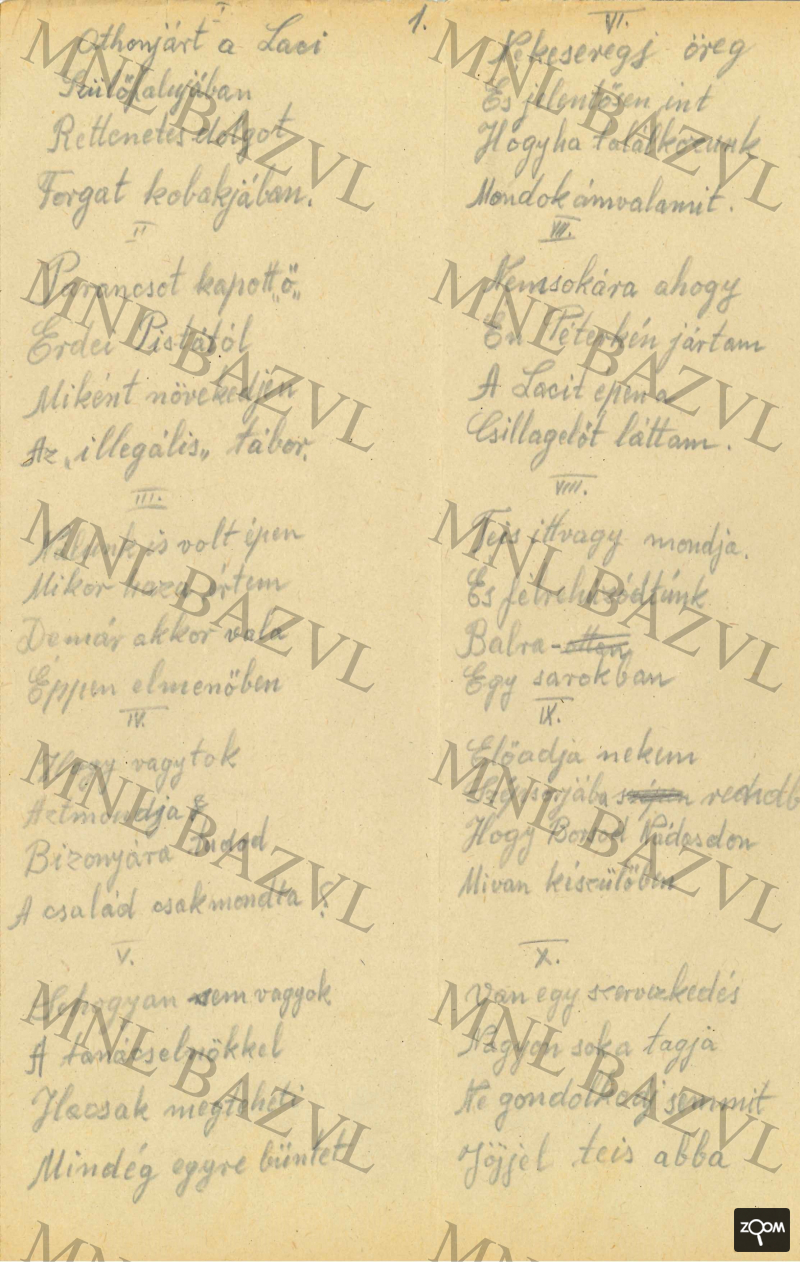 1.
I
Othonjárt a Laci
Szülőfalujában
Rettenetes dolgot
Forgat kobakjában.
II
Parancsot kapott „ő„
Erdei Pistától
Miként növekedjen
Az „illegális„ tábor.
III.
Nálunk is volt épen
Mikor haza értem
Demár akkor vala
Éppen elmenőben
IV.
Hogy vagytok
Aztmondja?
Bizonyára Tudod
A család csakmondta?
V.
Sehogyan sem vagyok
A tanácselnökkel
Hacsak megteheti
Mindég egyre büntet
VI.
Nekeseregj öreg
És jelentősen int
Hogyha találkozunk
Mondok ámvalamit.
VII.
Nemsokára ahogy
Én Péterkén jártam
A Lacit épen a
Csillagelőt láttam.
VIII.
Teis ittvagy mondja.
És félrehúzódtunk
Balra - otten
Egy sarokban
IX.
Előadja nekem
szépen rendtb
Hogy Borsod Nádasdon
Mivan készülőben
X.
Van egy szervezkedés
Nagyon soka tagja
Ne gondolkodj semmit
Jöjjel teis abba
MNL BAZVL
MNL BAZVL
MNL BAZVL
MNL BAZVL
MNL BAZVL
MNL BAZVL
MNL BAZVL
MNL BAZVL
MNL BAZVL
MNL BAZVL
MNL
MNL
ZOOM